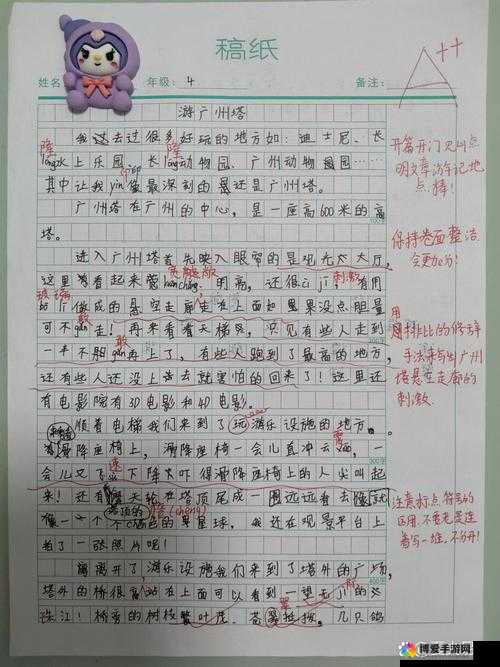 稿纸
姓名
年级: 4
备注:
A++
游广州塔
我过去过很多好玩的地方如：迪士尼、长
隆 隆
long水上乐园、长long动物园、广州动物园……
印
其中让我yin像最深刻的是还是广州塔。
广州塔在广州的中心，是一座高600米的高
塔。
进入广州塔首先映入眼帘的是观光大大厅，
宽敞
这里看看起来 明高，还很ci ji 有用
玻璃 刺激
bo 做成的悬空走廊走在上面如果没点胆量
可不 走！再来看看天梯 只见有些人走到
敢
一半不胆gan再上了，有些人跑到了最高的地方，
还有些人还没上去就害怕的回来了！这里还
有电影院有3D电影和4D电影。
顺着电梯我们来到了玩游乐设施的地方。
滑降座椅上，滑降座椅一会儿直冲云
霄
一会儿又 下降 吓得滑降座椅上的人尖叫起
速
来！还有摩天轮在塔顶尾成一圈远远看去像
塔顶的
像一个个 色的星星球，我还在观景平台上
橙(chéng)
拍了一张照片呢！
离开了游乐设施我们来到了塔外的广场，
塔外的桥很高站在上面可以看到一望无ji的
际
珠江！桥旁的树枝 叶茂、苍 挺拔，几只鸽
翠
开篇开门见山点
明文章游记地
点，棒！
保持卷面整洁
会更加分！
用
排比的修辞
手法来写出广州
塔悬空走廊的
刺激
注意标点符号的
区用，不要老是连
着写一堆，不分开！
300字
博爱手游网